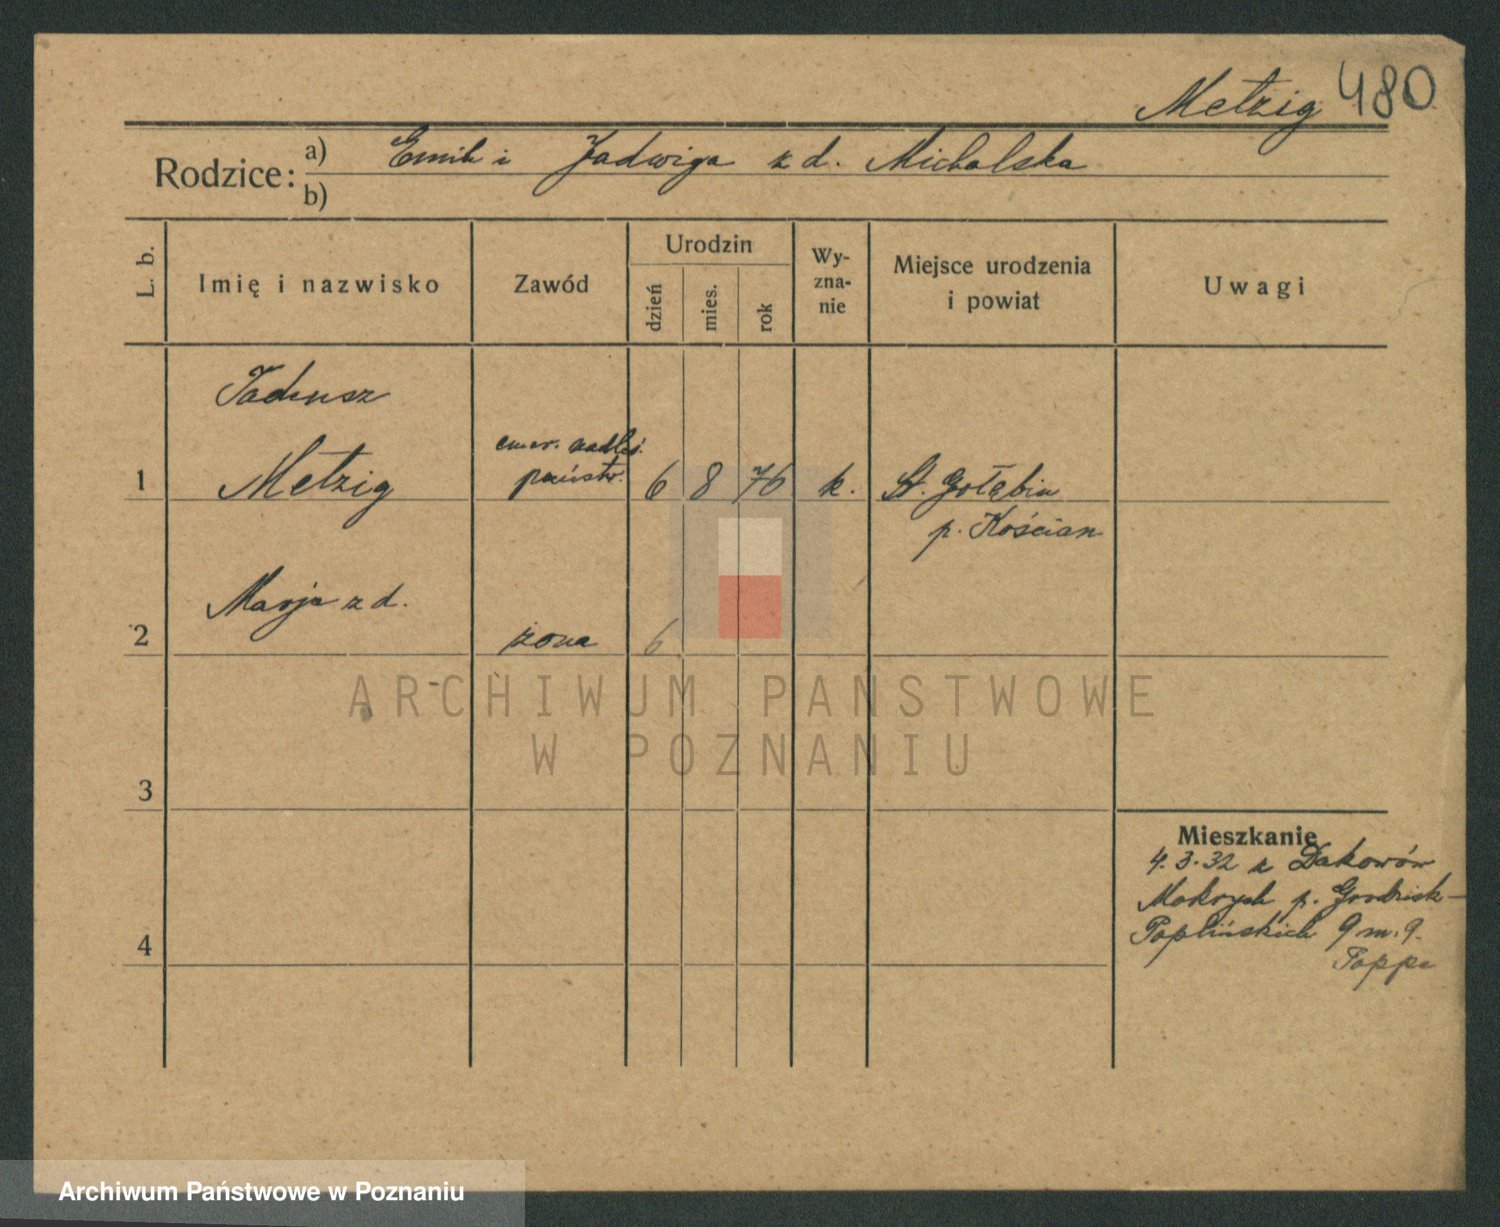 Metzig 480
Rodzice: a) Emil i Jadwiga z d. Michalska
b)
L. b. Imię i nazwisko Zawód Urodzin dzień mies. rok Wy-zna-nie Miejsce urodzenia i powiat Uwagi
Tadeusz
emer. nadleś.
1 Metzig państw. 6 8 76 k. St. Gołębin
p. Kościan
Marja z d.
2 żona 6
ARCHIWUM PAŃSTWOWE
W POZNANIU
3
Mieszkanie
4. 3. 32 z Dakowów
Mokrych p. Grodzisk –
4 Poplińskich 9 m. 9.
Poppe
Archiwum Państwowe w Poznaniu